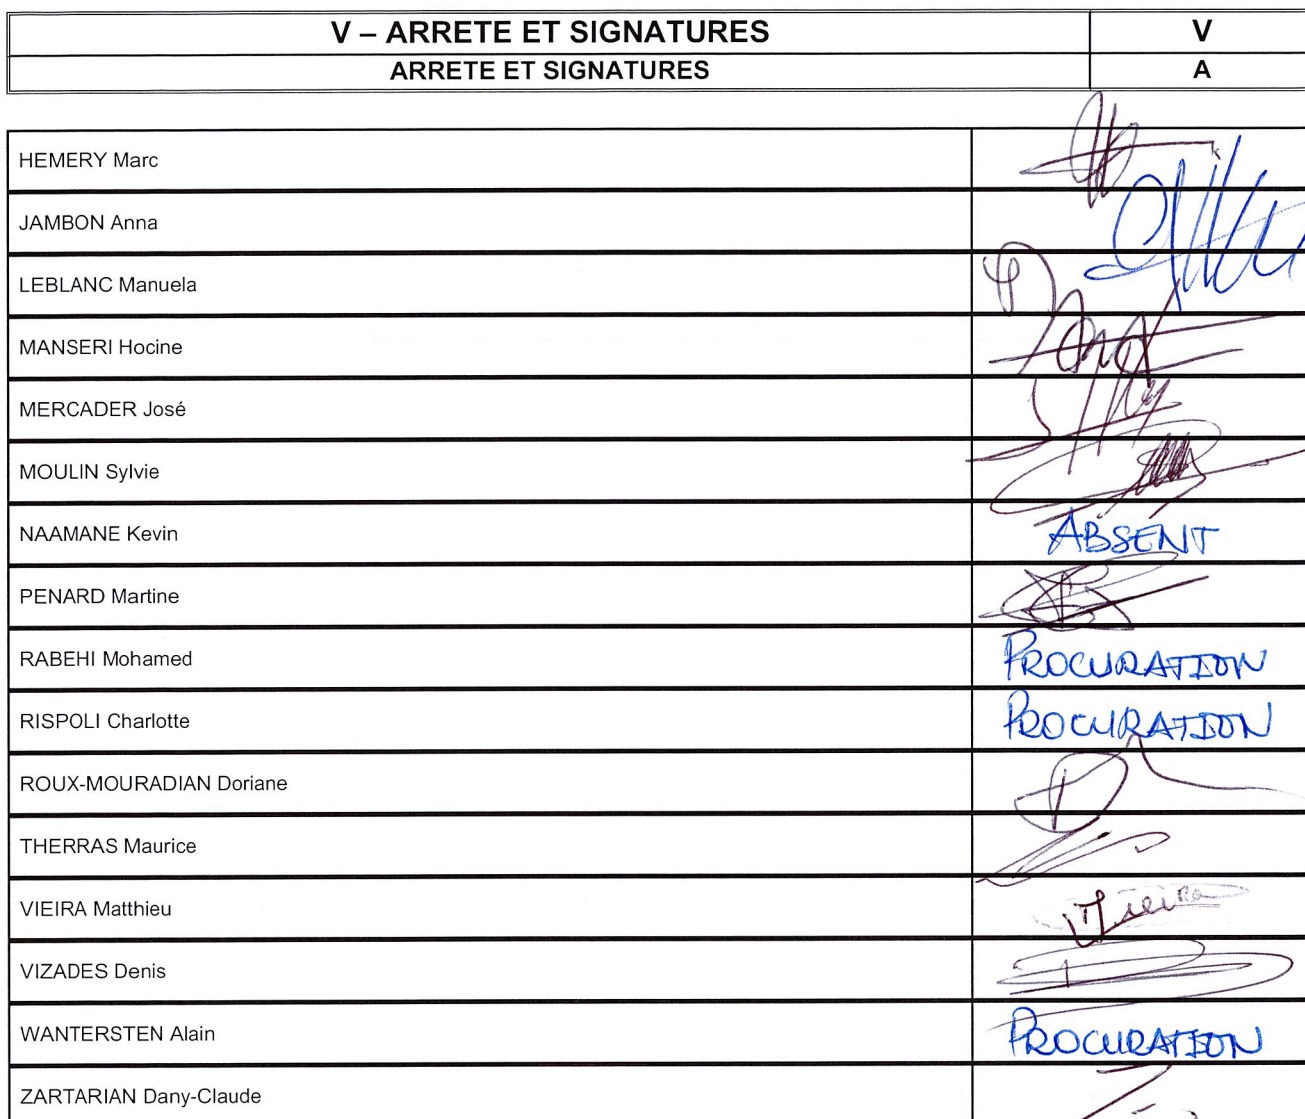 V – ARRETE ET SIGNATURES V
ARRETE ET SIGNATURES A
HEMERY Marc
JAMBON Anna
LEBLANC Manuela
MANSERI Hocine
MERCADER José
MOULIN Sylvie
NAAMANE Kevin ABSENT
PENARD Martine
RABEHI Mohamed PROCURATION
RISPOLI Charlotte PROCURATION
ROUX-MOURADIAN Doriane
THERRAS Maurice
VIEIRA Matthieu Vieira
VIZADES Denis
WANTERSTEN Alain PROCURATION
ZARTARIAN Dany-Claude